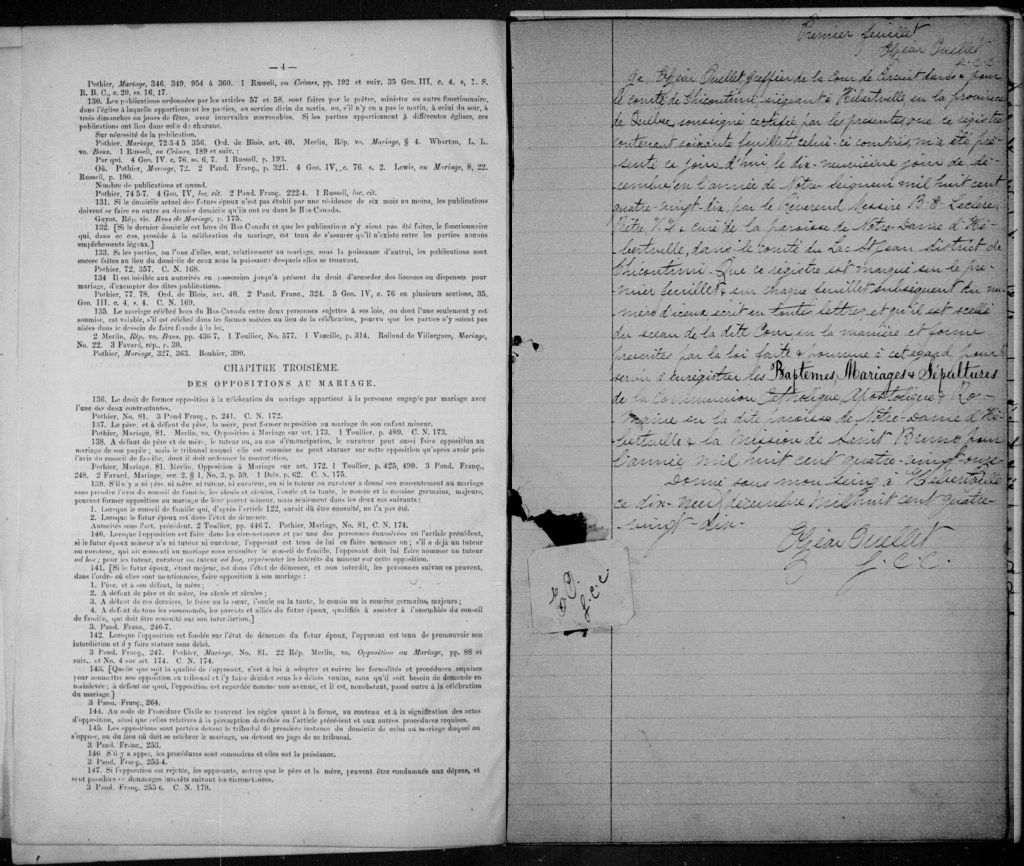 — 4 —
Pothier, Mariage, 346, 349, 954 à 360. 1 Russell, on Crimes, pp. 192 et suiv. 35 Geo. III, c. 4, s, 1. S.
R. B. C., c. 20, ss. 16, 17.
130. Les publications ordonnées par les articles 57 et 58, sont faites par le prêtre, ministre ou autre fonctionnaire,
dans l'église à laquelle appartiennent les parties, au service divin du matin, ou, s'il n'y en a pas le matin, à celui du soir, à
trois dimanches ou jours de fêtes, avec intervalles convenables. Si les parties appartiennent à différentes églises, ces
publications ont lieu dans celle de chacune.
Sur nécessité de la publication.
Pothier, Mariage, 72-3-4 5, 356. Ord. de Blois, art. 40. Merlin, Rép. vo. Mariage, § 4. Wharton, L. L.
vo. Bans. 1 Russell, on Crimes, 189 et suiv. :
Par qui. 4 Geo. IV, c. 76, ss. 6, 7. 1 Russell, p. 193.
Où. Pothier, Mariage, 72. 2 Pand. Franç., p. 321. 4 Geo. IV, c. 76, s. 2. Lewis, on Mariage, 8, 22.
Russell, p. 190.
Nombre de publications et quand.
Pothier, 74 5-7. 4 Geo. IV, loc. cit. 2 Pand. Franç., 222-4. 1 Russell, loc. cit.
131. Si le domicile actuel des futurs époux n'est pas établi par une résidence de six mois au moins, les publications
doivent se faire en outre au dernier domicile qu'ils ont eu dans le Bas-Canada.
Guyot, Rép. vis. Bans de Mariage, p. 175.
132. [Si le dernier domicile est hors du Bas Canada et que les publications n'y aient pas été faites, le fonctionnaire
qui, dans ce cas, procède à la célébration du mariage, est tenu de s'assurer qu'il n'existe entre les parties aucuns
empêchements légaux.]
133. Si les parties, ou l'une d'elles, sont, relativement au mariage, sous la puissance d'autrui, les publications sont
encore faites au lieu du domicile de ceux sous la puissance desquels elles se trouvent.
Pothier, 72, 357. C. N. 168.
134 Il est loisible aux autorités en possession jusqu'à présent du droit d'accorder des licences ou dispenses pour
mariage, d'exempter des dites publications.
Pothier, 77, 78. Ord. de Blois, art. 40. 2 Pand. Franc., 324. 5 Geo. IV, c. 76 en plusieurs sections, 35.
Geo. III. c. 4, s. 4. C. N. 169.
135. Le mariage célébré hors du Bas-Canada entre deux personnes sujettes à ses lois, ou dont l'une seulement y est
soumise, est valable, s'il est célébré dans les formes usitées au lieu de la célébration, pourvu que les parties n'y soient pas
allées dans le dessein de faire fraude à la loi.
2 Merlin, Rép. vo. Bans, pp. 436 7, 1 Toullier, No. 577. 1 Vazeille, p. 314. Rolland de Villargues, Mariage,
No. 22. 3 Favard, rép., p. 30.
Pothier, Mariage, 327, 363. Bouhier, 390.
CHAPITRE TROISIÈME.
DES OPPOSITIONS AU MARIAGE.
136. Le droit de former opposition à la célébration du mariage appartient à la personne engagée par mariage avec
l'une des deux contractantes.
Pothier, No. 81. 3 Pand Franç., p. 241. C. N. 172.
137. Le père, et à défaut du père, la mère, peut former opposition au mariage de son enfant mineur.
Pothier, Mariage, 81. Merlin, vo. Opposition à Mariage sur art. 173. 1 Toullier, p. 489. C. N. 173.
138. A défaut de père et de mère, le tuteur ou, au cas d'émancipation, le curateur peut aussi faire opposition au
mariage de son pupile ; mais le tribunal auquel elle est soumise ne peut statuer sur cette opposition qu'après avoir pris
l'avis du conseil de famille, dont il doit ordonner la convocation.
Pothier, Mariage, 81. Merlin, Opposition à Mariage sur art. 172. 1 Toullier, p. 425, 490. 3 Pand. Franç.,
248. 2 Favard, Mariage, sec. 2, § 1, No. 3, p. 59. 1 Delv. p. 62. C. N. 175.
139. S'il n'y a ni père, ni mère, ni tuteur, ni curateur, ou si le tuteur ou curateur a donné son consentement au mariage
sans prendre l'avis du conseil de famille, les aïeuls et aïeules, l'oncle et la tante, le cousin et la cousine germains, majeurs,
peuvent former opposition au mariage de leur parent mineur, mais seulement dans les deux cas suivants :
1. Lorsque le conseil de famille qui, d'après l'article 122, aurait dû être consulté, ne l'a pas été.
2. Lorsque le futur époux est dans l'état de démence.
Autorités sous l'art. précédent. 2 Toullier, pp. 446 7. Pothier, Mariage, No. 81, C. N. 174.
140. Lorsque l'opposition est faite dans les circonstances et par une des personnes énumérées en l'article précédent,
si le futur époux mineur n'a ni tuteur ni curateur, l'opposant est tenu de lui en faire nommer un ; s'il a déjà un tuteur
ou curateur, qui ait consenti au mariage sans consulter le conseil de famille, l'opposant doit lui faire nommer un tuteur
ad hoc ; pour les tuteur, curateur ou tuteur ad hoc, représenter les intérêts du mineur sur cette opposition.
141. [Si le futur époux, étant majeur, est dans l'état de démence, et non interdit, les personnes suivantes peuvent,
dans l'ordre où elles sont mentionnées, faire opposition à son mariage :
1. Père, et à son défaut, la mère ;
2. A défaut de père et de mère, les aïeuls et aïeules ;
3. A défaut de ces derniers, le frère ou la sœur, l'oncle ou la tante, le cousin ou la cousine germains, majeurs ;
4. A défaut de tous les susnommés, les parents et alliés du futur époux, qualifiés à assister à l'assemblée du conseil
de famille, qui doit être consulté sur son interdiction.]
3. Pand. Franc., 246-7.
142. Lorsque l'opposition est fondée sur l'état de démence du futur époux, l'opposant est tenu de promouvoir son
interdiction et d'y faire statuer sans délai.
3 Pand. Franç., 247. Pothier, Mariage, No. 81. 22 Rép. Merlin, vo. Opposition au Mariage, pp. 88 et
suiv. et No. 4 sur art. 174. C. N. 174.
143. [Quelle que soit la qualité de l'opposant, c'est à lui à adopter et suivre les formalités et procédures requises
pour soumettre son opposition au tribunal et l'y faire décider sous les délais voulus, sans qu'il soit besoin de demande en
mainlevée ; à défaut de quoi, l'opposition est regardée comme non avenue, et il est, nonobstant, passé outre à la célébration
du mariage.]
3 Pand. Franç., 264.
144. Au code de Procédure Civile se trouvent les règles quant à la forme, au contenu et à la signification des actes
d'opposition, ainsi que celles relatives à la péremption décrétée en l'article précédent et aux autres procédures requises.
145. Les oppositions sont portées devant le tribunal de première instance du domicile de celui au mariage duquel on
s'oppose, ou du lieu où doit se célébrer le mariage, ou devant un juge de ce tribunal.
3 Pand. Franc., 253.
146 S'il y a appel, les procédures sont sommaires et elles ont la préséance.
3 Pand. Franç., 253-4.
147. Si l'opposition est rejetée, les opposants, autres que le père et la mère, peuvent être condamnés aux dépens, et
sont passibles de dommages intérêts suivant les circonstances.
3 Pand. Franç. 255 6. C. N. 179.
Premier feuillet
Elzéar Ouellet
G. C. C.
Je Elzéar Ouellet Greffier de la Cour de Circuit dans & pour
le comté de Chicoutimi, siégeant à Hébertville, en la province
de Québec soussigné certifie par les présentes que ce registre
contenant soixante feuillets celui-ci compris m'a été pré-
senté ce jour d'hui, le dix-neuvième jour de dé-
cembre en l'année de Notre-Seigneur mil huit cent
quatre-vingt-dix, par le Révérend Messire B. E. Leclerc
Ptre, V.F. & curé de la paroisse de Notre-Dame d'Hé-
bertville, dans le comté du Lac St Jean district de
Chicoutimi. Que ce registre est marqué sur le pre-
mier feuillet & sur chaque feuillet subséquent du nu-
méro d'iceux écrit en toutes lettres et qu'il est scellé
du sceau de la dite Cour en la manière et forme
prescrites par la loi faite & pourvue à cet égard pour
servir à enregistrer les Baptêmes, Mariages & Sépultures
de la Communion Catholique, Apostolique & Ro-
maine en la dite paroisse de Notre-Dame d'Hé-
bertville & la Mission de Saint Bruno pour
l'année mil huit cent quatre-vingt-onze
Donné sous mon seing à Hébertville
ce dix-neuf décembre mil huit cent quatre-
vingt-dix-
Elzéar Ouellet
G. C. C.
E. O.
G. C. C.